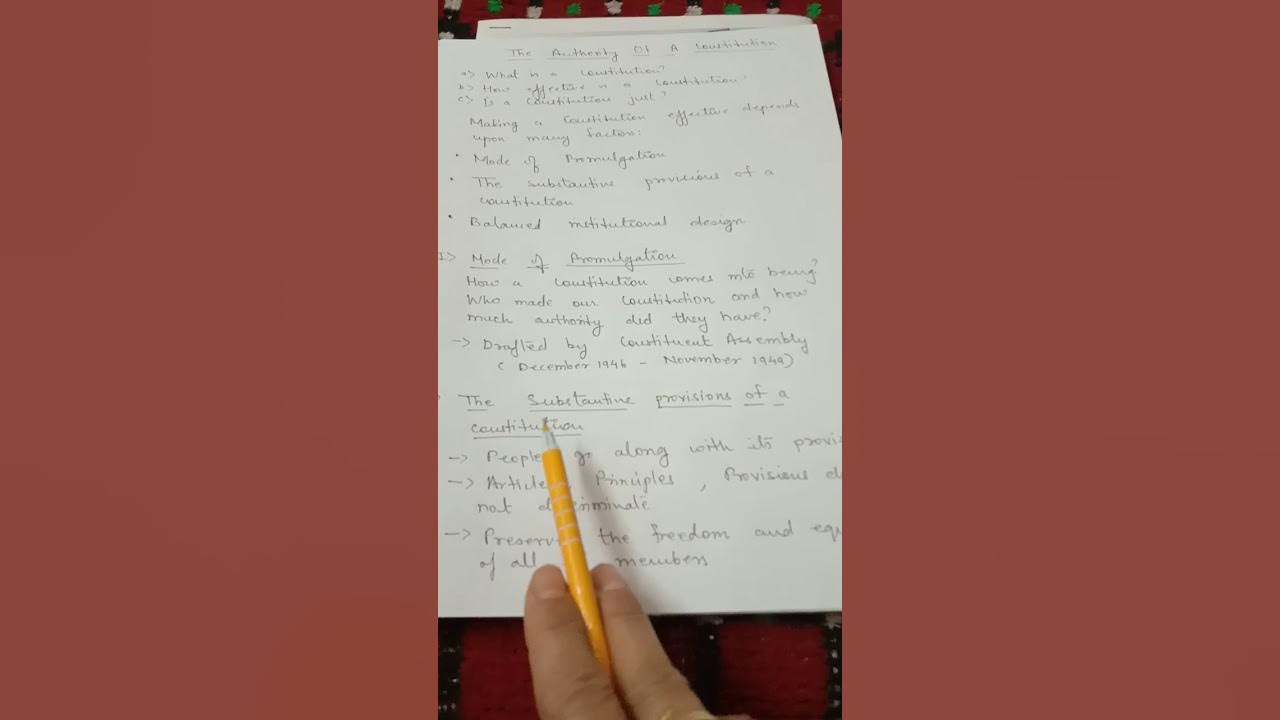 The Authority Of A Constitution
a) What is a constitution?
b) How effective is a constitution?
c) Is a constitution just?
Making a constitution effective depends
upon many factors:
• Mode of Promulgation
• The substantive provisions of a
constitution
• Balanced institutional design.
1) Mode of Promulgation
How a constitution comes into being?
Who made our constitution and how
much authority did they have?
-> Drafted by Constituent Assembly
( December 1946 - November 1949)
The Substantive provisions of a
constitution
-> People go along with its
-> Principles, Provisions
not
-> the freedom and
of all members